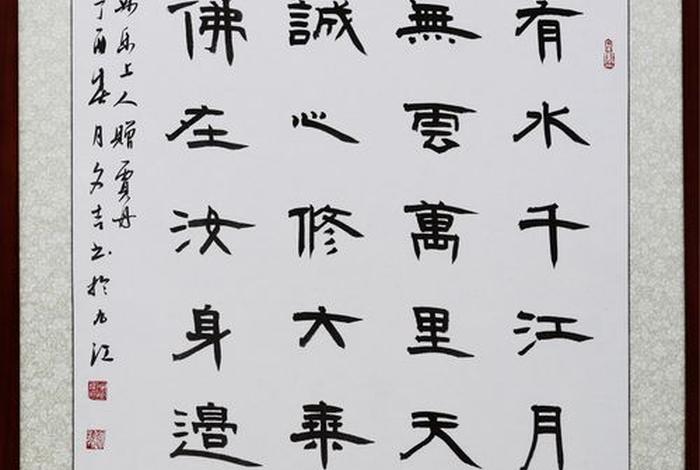 有水千江月
無雲萬里天
誠心修大乘
佛在汝身邊
乐上人贈賈丹
丁酉春月吉书於九江